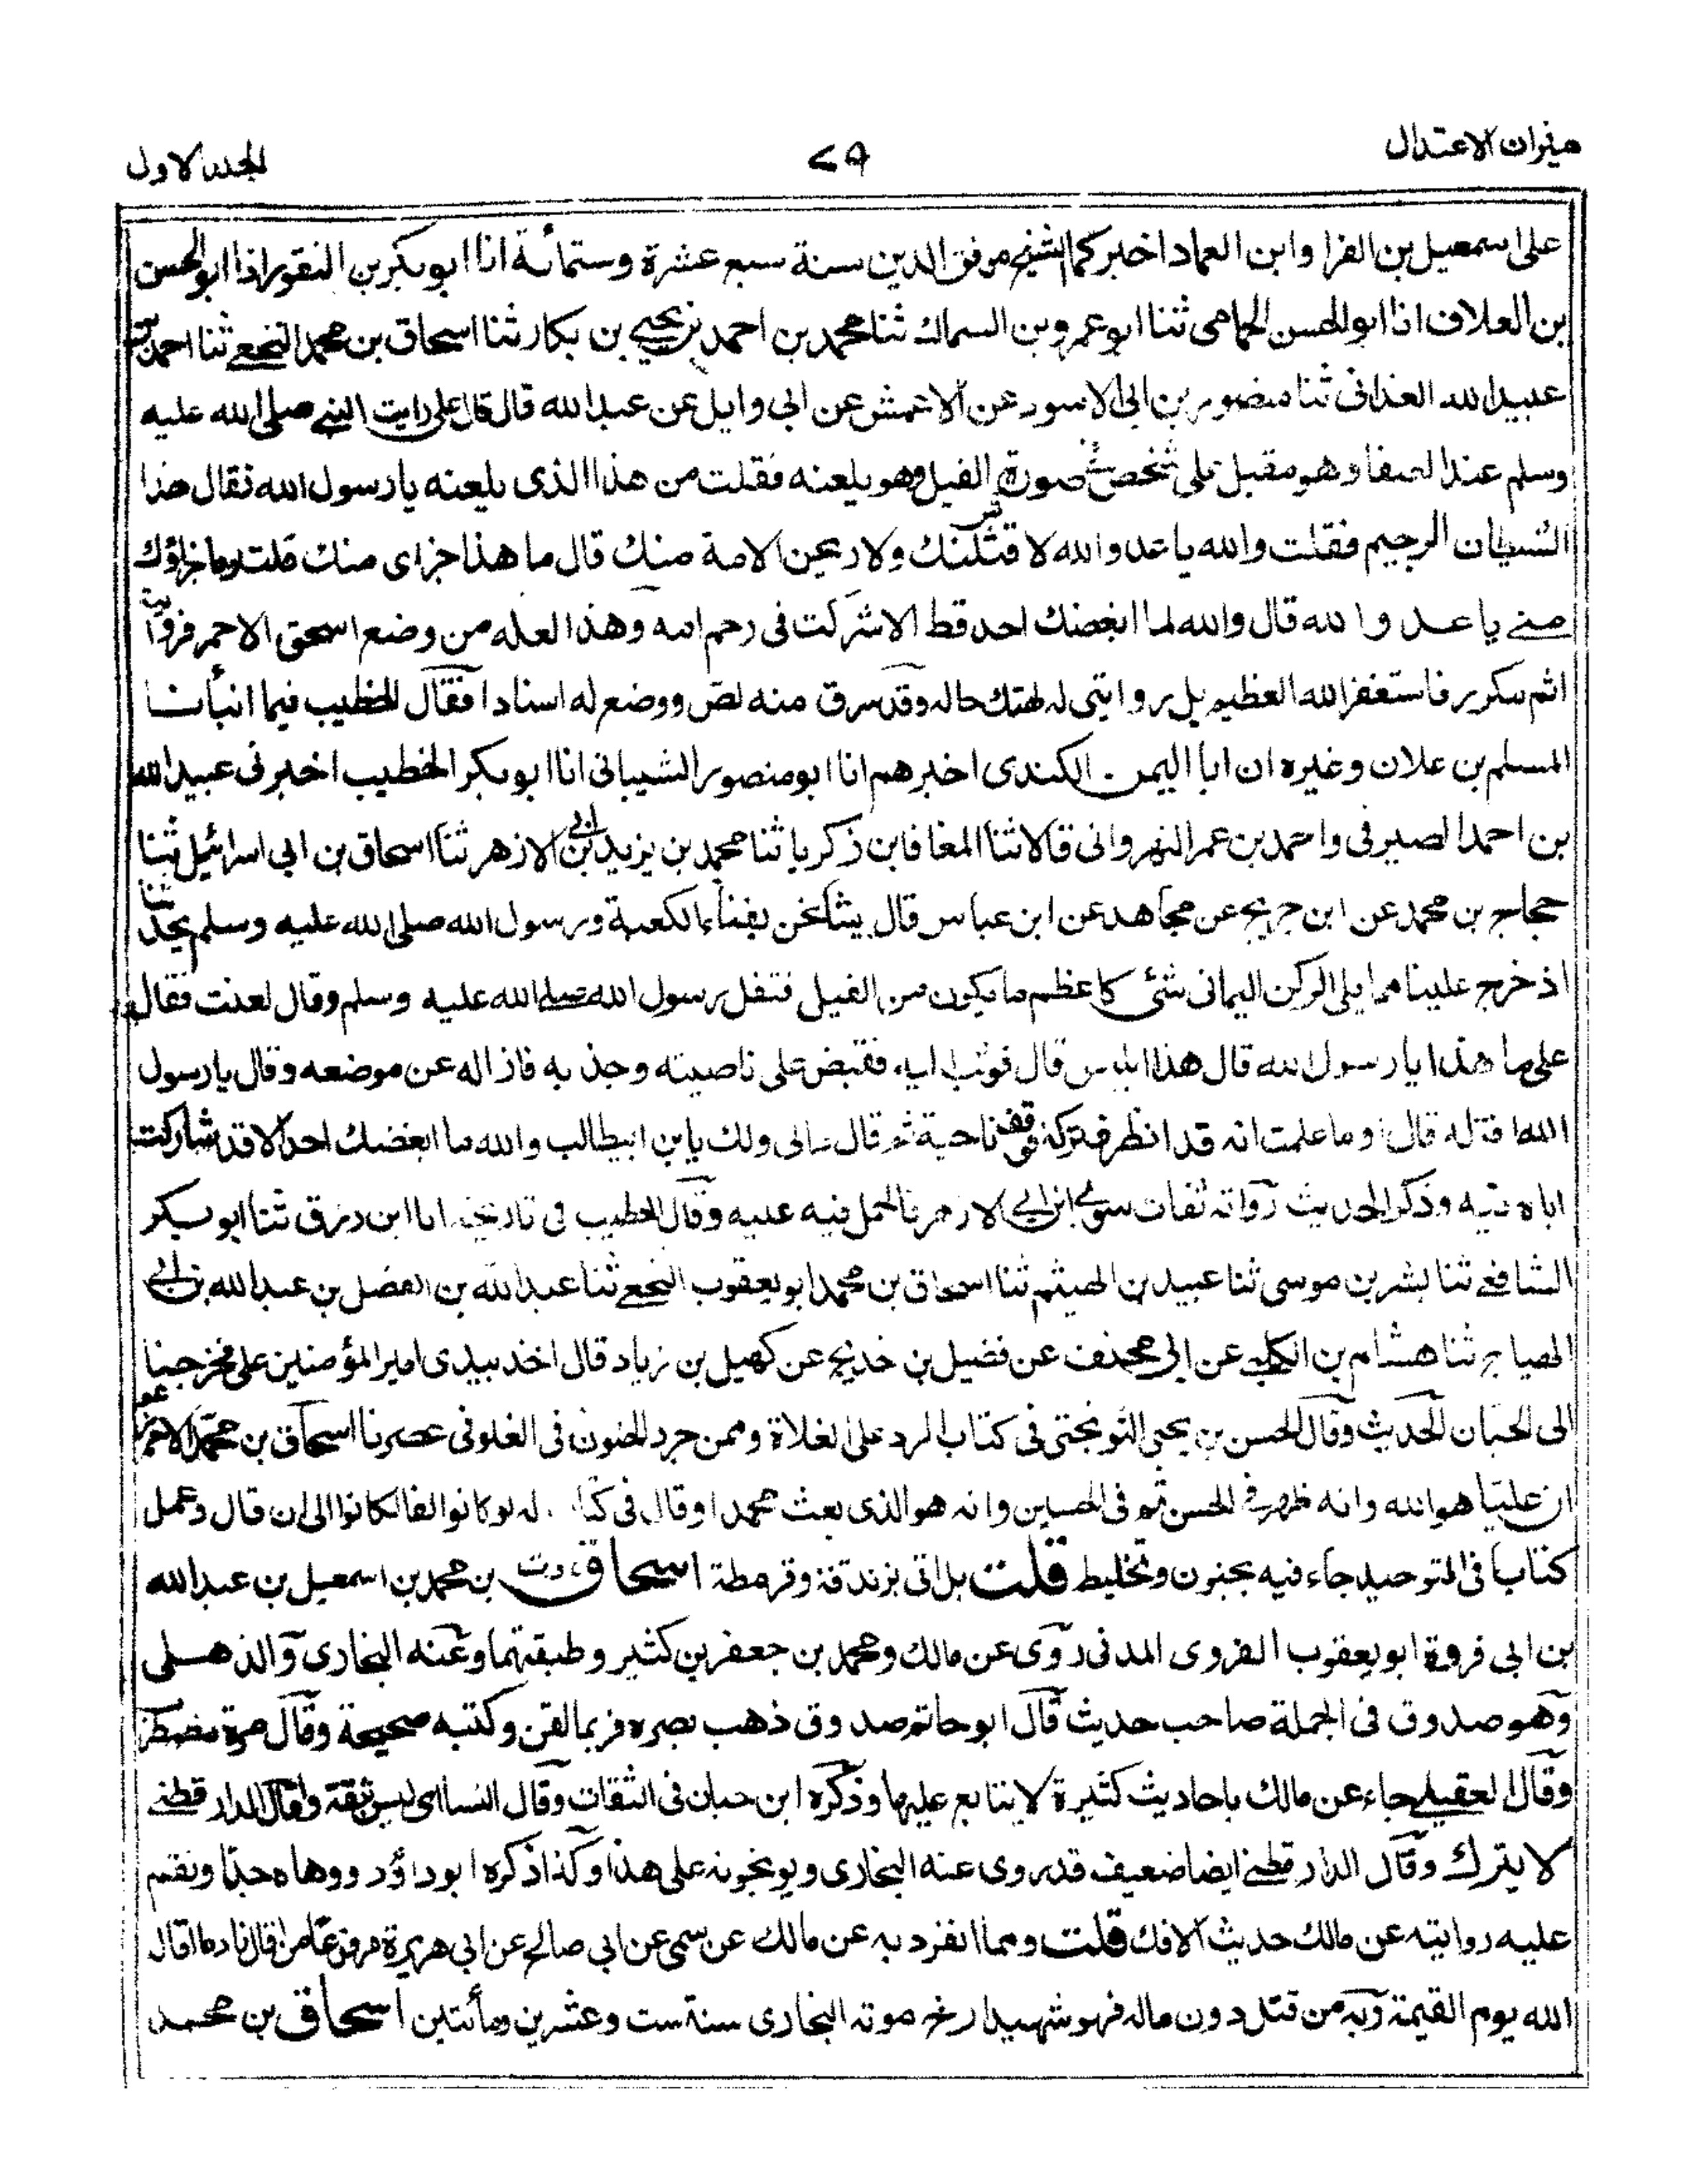 ميزان الاعتدال
٧٩
المجلد الاول
على اسمعيل بن الفرا وابن العماد اخبركما الشيخ موفق الدين سنة سبع عشرة وستمائة انا ابو بكر بن النقور انا ابو الحسن
بن العلاف انا ابو الحسن الحمامى ثنا ابو عمرو بن السماك ثنا محمد بن احمد بن يحيى بن بكار ثنا اسحاق بن محمد النخعے ثنا احمد بن
عبيد الله الغدانى ثنا منصور بن ابى الاسود عن الاعمش عن ابى وايل عن عبد الله قال قال على رايت النبے صلى الله عليه
وسلم عند الصفا وهو مقبل على شخص فى صورة الفيل وهو يلعنه فقلت من هذا الذى يلعنه يا رسول الله فقال هذا
الشيطان الرجيم فقلت والله يا عدو الله لاقتلنك ولاريحن الامة منك قال ما هذا جزاى منك قلت وما جزاؤك
منے يا عدو الله قال والله لما ابغضك احد قط الا شركت فى رحم امه وهذا لعله من وضع اسحق الاحمر فروايته
اثم مكرر فاستغفر الله العظيم بل روايتى له لهتك حاله وقد سرق منه لص ووضع له اسنادا فقال الخطيب فيما انبأنا
المسلم بن علان وغيره ان ابا اليمن الكندى اخبرهم انا ابو منصور الشيبانى انا ابو بكر الخطيب اخبرنى عبيد الله
بن احمد الصيرفى واحمد بن عمر النهروانى قالا ثنا المعافا بن زكريا ثنا محمد بن يزيد بن ابى الازهر ثنا اسحاق بن ابى اسرائيل ثنا
حجاج بن محمد عن ابن جريج عن مجاهد عن ابن عباس قال بينا نحن بفناء الكعبة ورسول الله صلى الله عليه وسلم يحدثنا
اذ خرج علينا مما يلى الركن اليمانى شئ كاعظم ما يكون من الفيل فتفل رسول الله صلے الله عليه وسلم وقال لعنت فقال
على ما هذا يا رسول الله قال هذا ابليس قال فوثب اليه فقبض على ناصيته وجذبه فازاله عن موضعه وقال يا رسول
الله اقتله قال او ما علمت انه قد انظر فتركه فوقف ناحية ثم قال مالى ولك يا بن ابيطالب والله ما ابغضك احد الا قد شاركت
اباه فيه وذكر الحديث رواته ثقات سوى ابن ابے الازهر فالحمل فيه عليه وقال الخطيب فى تاريخه انا ابن رزق ثنا ابو بكر
الشافعے ثنا بشر بن موسى ثنا عبيد بن الهيثم ثنا اسحاق بن محمد ابو يعقوب النخعے ثنا عبد الله بن الفضل بن عبد الله بن ابے
الهياج ثنا هشام بن الكلبے عن ابى مخنف عن فضيل بن خديج عن كهيل بن زياد قال اخذ بيدى امير المؤمنين على فخرجنا
الى الجبان الحديث وقال الحسن بن يحيى النوبختى فى كتاب الرد على الغلاة وممن جرد الجنون فى الغلو فى عصرنا اسحاق بن محمد الاحمر زعم
ان عليا هو الله وانه ظهر فى الحسن ثم فى الحسين وانه هو الذى بعث محمدا وقال فى كتاب له لو كانوا الفا لكانوا الى ان قال وعمل
كتابا فى التوحيد جاء فيه بجنون وتخليط قلت بل اتى بزندقة وقرمطة اسحاق خ، ت بن محمد بن اسمعيل بن عبد الله
بن ابى فروة ابو يعقوب الفروى المدنى روى عن مالك ومحمد بن جعفر بن كثير وطبقتهما وعنه البخارى والذهلى
وهو صدوق فى الجملة صاحب حديث قال ابو حاتم صدوق ذهب بصره فربما لقن وكتبه صحيحة وقال مرة مضطرب
وقال العقيلے جاء عن مالك باحاديث كثيرة لا يتابع عليها وذكره ابن حبان فى الثقات وقال النسائى ليس بثقة وقال الدار قطنے
لا يترك وقال الدار قطنے ايضا ضعيف قد روى عنه البخارى ويوبخونه على هذا وكذا ذكره ابو داؤد ووهاه جدا ونقم
عليه روايته عن مالك حديث الافك قلت ومما انفرد به عن مالك عن سمى عن ابى صالح عن ابى هريرة مرفوعا من اقال نادما اقال
الله يوم القيمة وبه من قتل دون ماله فهو شهيد ارخ موته البخارى سنة ست وعشرين ومأئتين اسحاق بن محمد